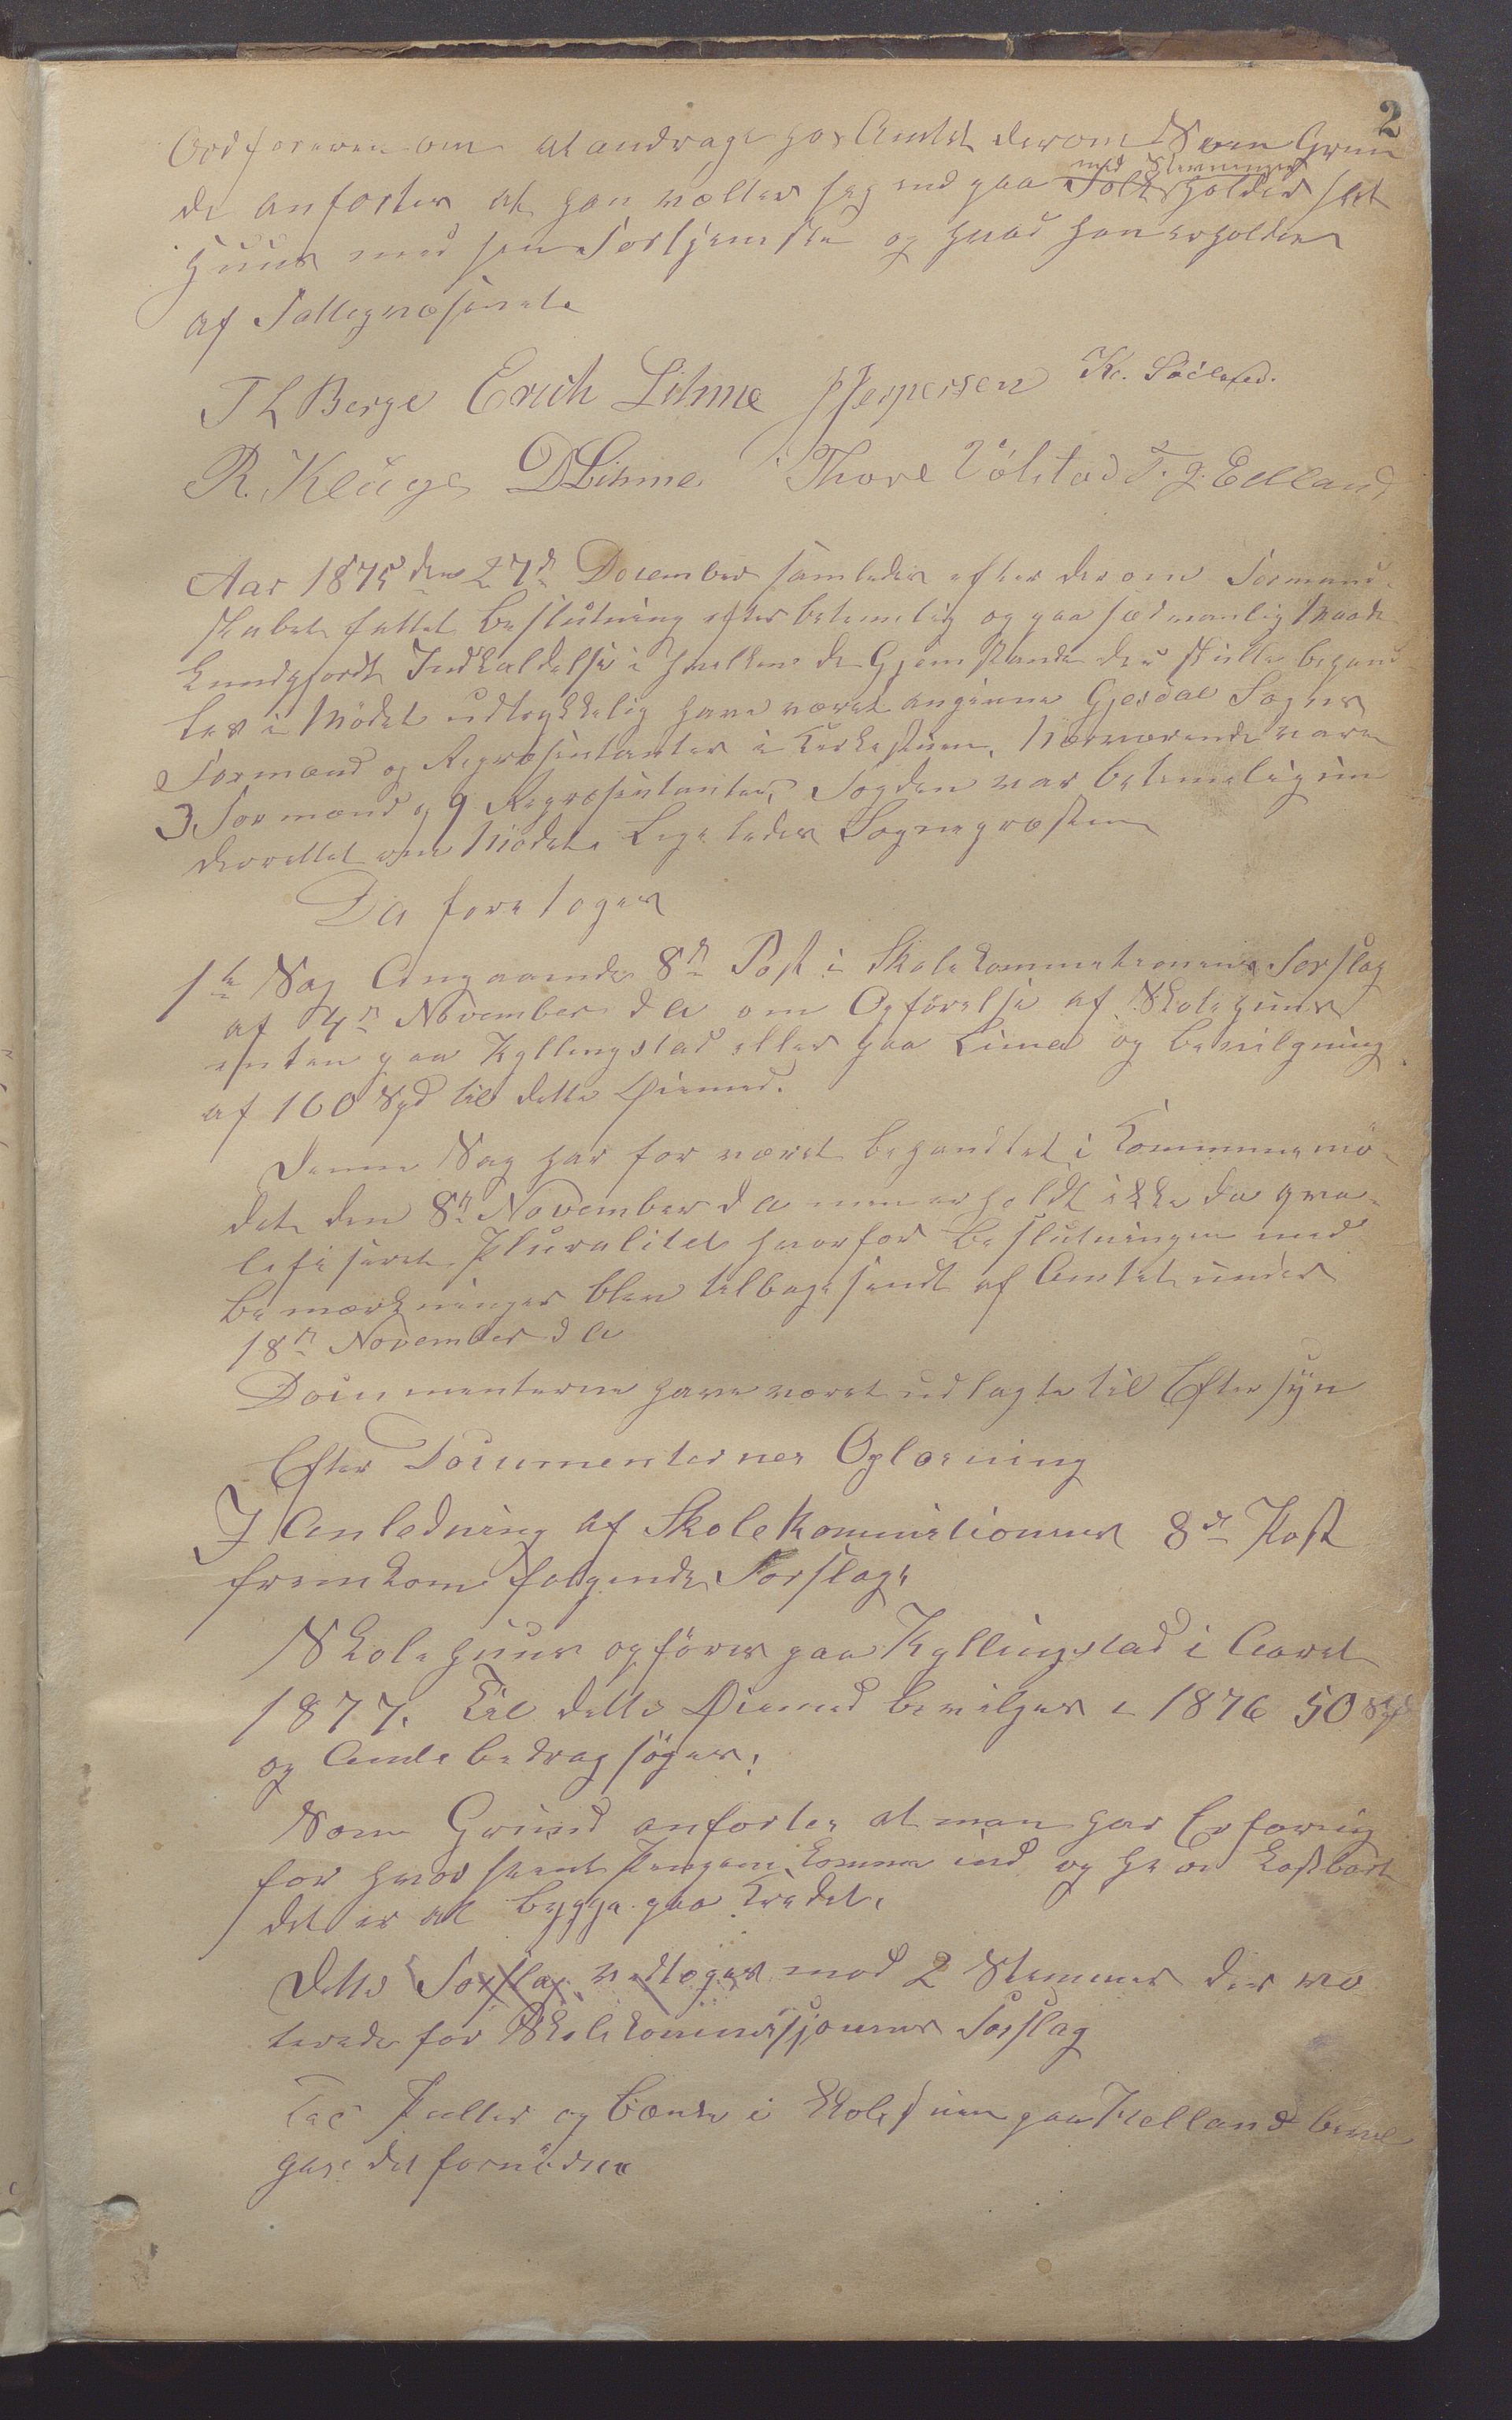 2
Ordføreren om at andrage hos Amtet derom Som Grun
med Stævninger
de anførtes at han vælter sig ind paa Folk, holder slet
Huus med sin Fortjeneste og hvad han erholder
af Fattigvæsenet.
T L Berge Erich Lihme J Jespersen
R. Kluge D Lihme Thore Vølstad T. J. Edland
Aar 1875 den 27de December samledes efter derom Formand-
skabet fattet Beslutning efter betimelig og paa sædvanlig Maade
kundgjordt Indkaldelse i hvilken de Gjenstande der skulle behand-
les i Mødet udtrykkelig have været angivne Gjesdal Sogns
Formænd og Repræsentanter i Kirkestuen. Nærværende vare
3 Formænd og 9 Repræsentanter, Fogden var betimelig un
derrettet om Mødet. Ligeledes Sognepræsten
Da foretoges
1te Sag Angaaende 8de Post i Skolekommissionens Forslag
af 4de November d A om Opførelse af Skolehuus
enten paa Kyllingstad eller paa Lima og Bevilgning
af 160 Spd til dette Øiemed.
Denne Sag har før været behandlet i Kommunemø-
det den 8de November d A men erholdt ikke da qva-
lifiseret Pluralitet hvorfor Beslutningen med
Bemærkninger blev tilbagesendt af Amtet under
18de November d A
Documenterne have været udlagte til Eftersyn
Efter Documenternes Oplæsning
I Anledning af Skolekommissionens 8de Post
fremkom følgende Forslag:
Skolehuus opføres paa Kyllingstad i Aaret
1877. Til dette Øiemed bevilges i 1876 50 Spd
og Amtsbedrag søges.
Som Grund anførtes at man har Erfaring
for hvor seent Pengene komme ind og hvor kostbart
det er at bygge paa Kredit.
Dette Forslag vedtoges mod 2 Stemmer der vo
terede for Skolekommissjonens Forslag
Til Pulter og Bænke i Skolestuen paa Kelland bevil
ges det fornødne